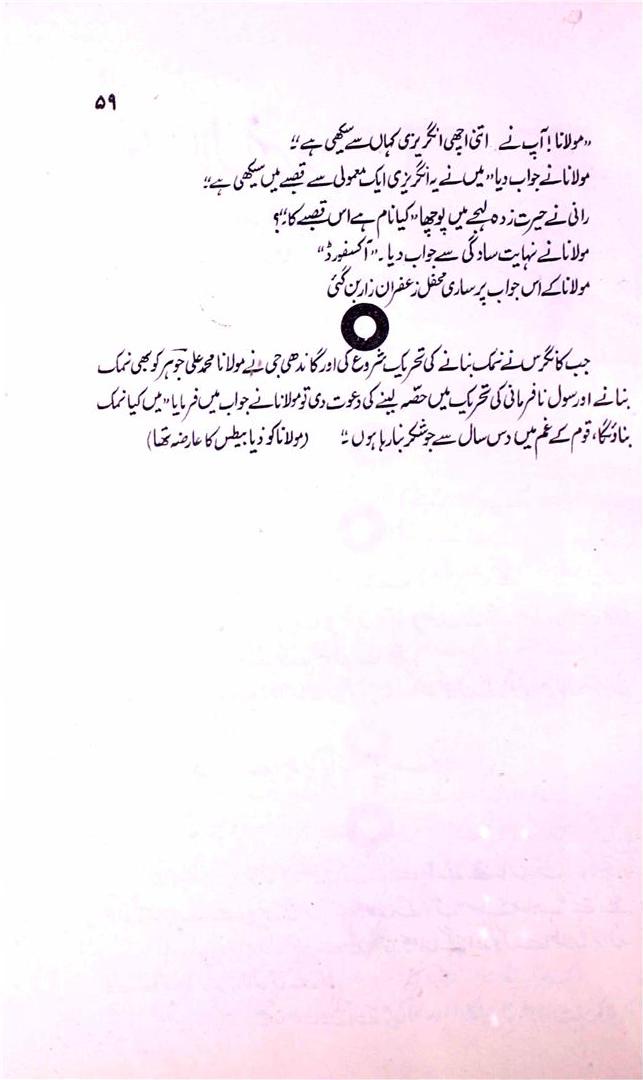 ۵۹
"مولانا! آپ نے اتنی اچھی انگریزی کہاں سے سیکھی ہے"
مولانا نے جواب دیا "میں نے یہ انگریزی ایک معمولی سے قصبے میں سیکھی ہے"
رانی نے حیرت زدہ لہجے میں پوچھا "کیا نام ہے اس قصبے کا"؟
مولانا نے نہایت سادگی سے جواب دیا۔ "آکسفورڈ"
مولانا کے اس جواب پر ساری محفل زعفران زار بن گئی
جب کانگرس نے نمک بنانے کی تحریک شروع کی اور گاندھی جی نے مولانا محمد علی جوہر کو بھی نمک
بنانے اور سول نافرمانی کی تحریک میں حصّہ لینے کی دعوت دی تو مولانا نے جواب میں فرمایا "میں کیا نمک
بناؤنگا، قوم کے غم میں دس سال سے جو شکر بنا رہا ہوں" (مولانا کو ذیابیطس کا عارضہ تھا)